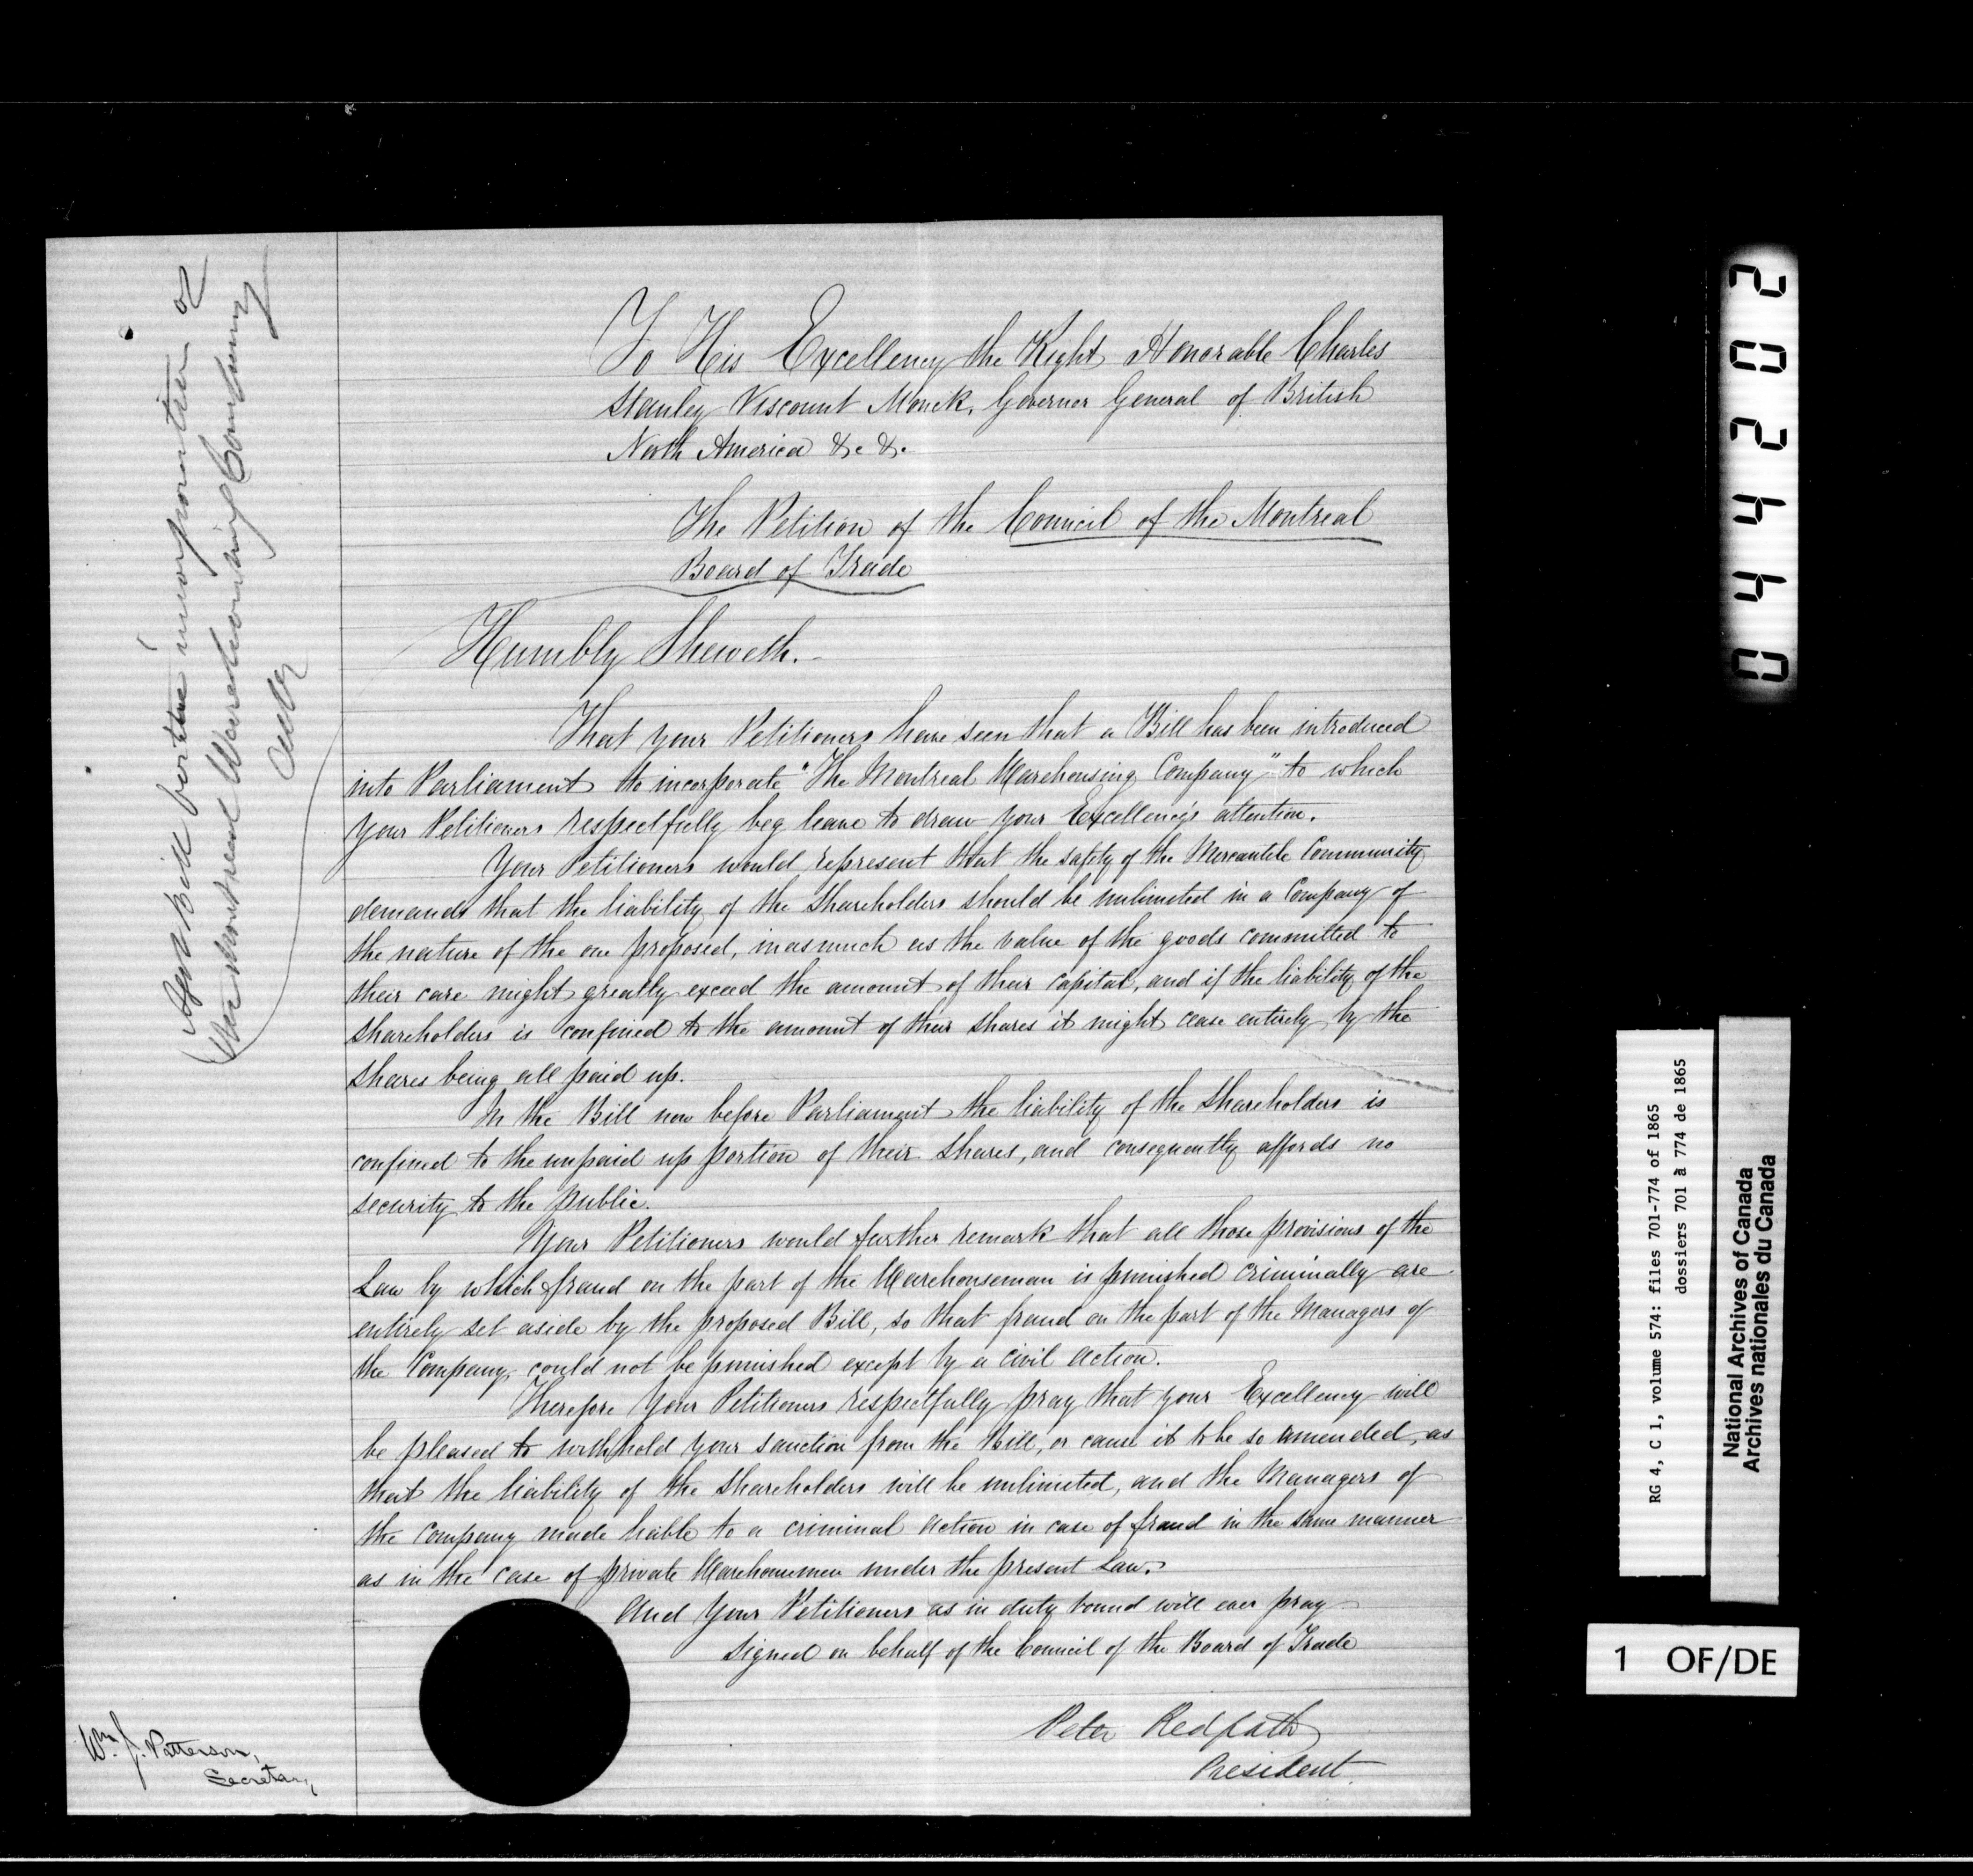 To His Excellency the Right Honorable Charles
Stanley Viscount Monck, Governor General of British
North America &c &c
The Petition of the Council of the Montreal
Board of Trade
Humbly Sheweth.-
That your Petitioners have seen that a Bill has been introduced
into Parliament to incorporate "The Montreal Warehousing Company" to which
your Petitioners respectfully beg leave to draw your Excellency's attention.
Your Petitioners would represent that the safety of the Mercantile Community
demands that the liability of the Shareholders should be unlimited in a Company of
the nature of the one proposed, inasmuch as the value of the goods committed to
their care might greatly exceed the amount of their capital, and if the liability of the
shareholders is confined to the amount of their shares it might cease entirely by the
shares being all paid up.
In the Bill now before Parliament the liability of the Shareholders is
confined to the unpaid up portion of their shares, and consequently affords no
security to the public.
Your Petitioners would further remark that all those provisions of the
Law by which fraud on the part of the Warehouseman is punished criminally are
entirely set aside by the proposed Bill, so that fraud on the part of the Managers of
the Company, could not be punished except by a civil action.
Therefore Your Petitioners respectfully pray that your Excellency will
be pleased to withhold your sanction from the Bill, or cause it to be so amended, as
that the liability of the shareholders will be unlimited, and the Managers of
the Company made liable to a criminal action in case of fraud in the same manner
as in the case of private Warehousemen under the present Law.
And Your Petitioners as in duty bound will ever pray
Signed on behalf of the Council of the Board of Trade
Peter Redpath
President.
Wm. J. Patterson,
Secretary
Bill for the incorporation of
the Montreal Warehousing Company
202440
RG 4, C 1, volume 574: files 701-774 of 1865
dossiers 701 à 774 de 1865
National Archives of Canada
Archives nationales du Canada
1 OF/DE